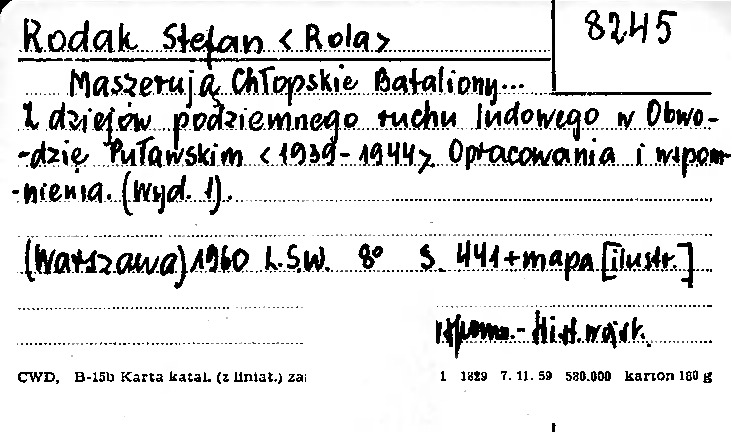 8245
Rodak Stefan < Rola >
Maszerują Chłopskie Bataliony...
Z dziejów podziemnego ruchu ludowego w Obwo-
-dzie Puławskim < 1939-1944 >. Opracowania i wspom-
-nienia. (Wyd. 1).
(Warszawa) 1960 L.S.W. 8° S. 441 + mapa [ilustr.]
Wspomn.-Hist. wojsk.
CWD, B-15b Karta katal. (z liniat.) za: 1 1829 7.11.59 580.000 karton 180 g